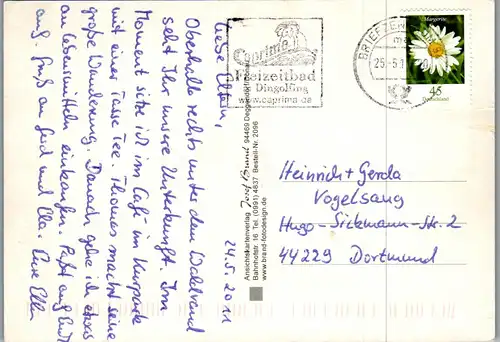 Liebe Eltern,
Oberhalb rechts unter dem Waldrand
seht Ihr unsere Unterkunft. Im
Moment sitze ich im Café im Kurpark
mit einer Tasse Tee. Thomas macht seine
große Wanderung. Danach gehe ich etwas
an Lebensmitteln einkaufen. Paßt auf Euch
auf. Gruß an Gerd und Ella. Eure Ellen
24.5.2011
Caprima
Freizeitbad
Dingolfing
www.caprima.de
BRIEFZEN
Margerite
45
Deutschland
Ansichtskartenverlag
94469 Deggendorf
Bahnhofstr. 16 Tel. (0991) 4837 Bestell-Nr. 2096
www.brand-fotodesign.de
Heinrich + Gerda
Vogelsang
Hugo-Sickmann-Str. 2
44229 Dortmund